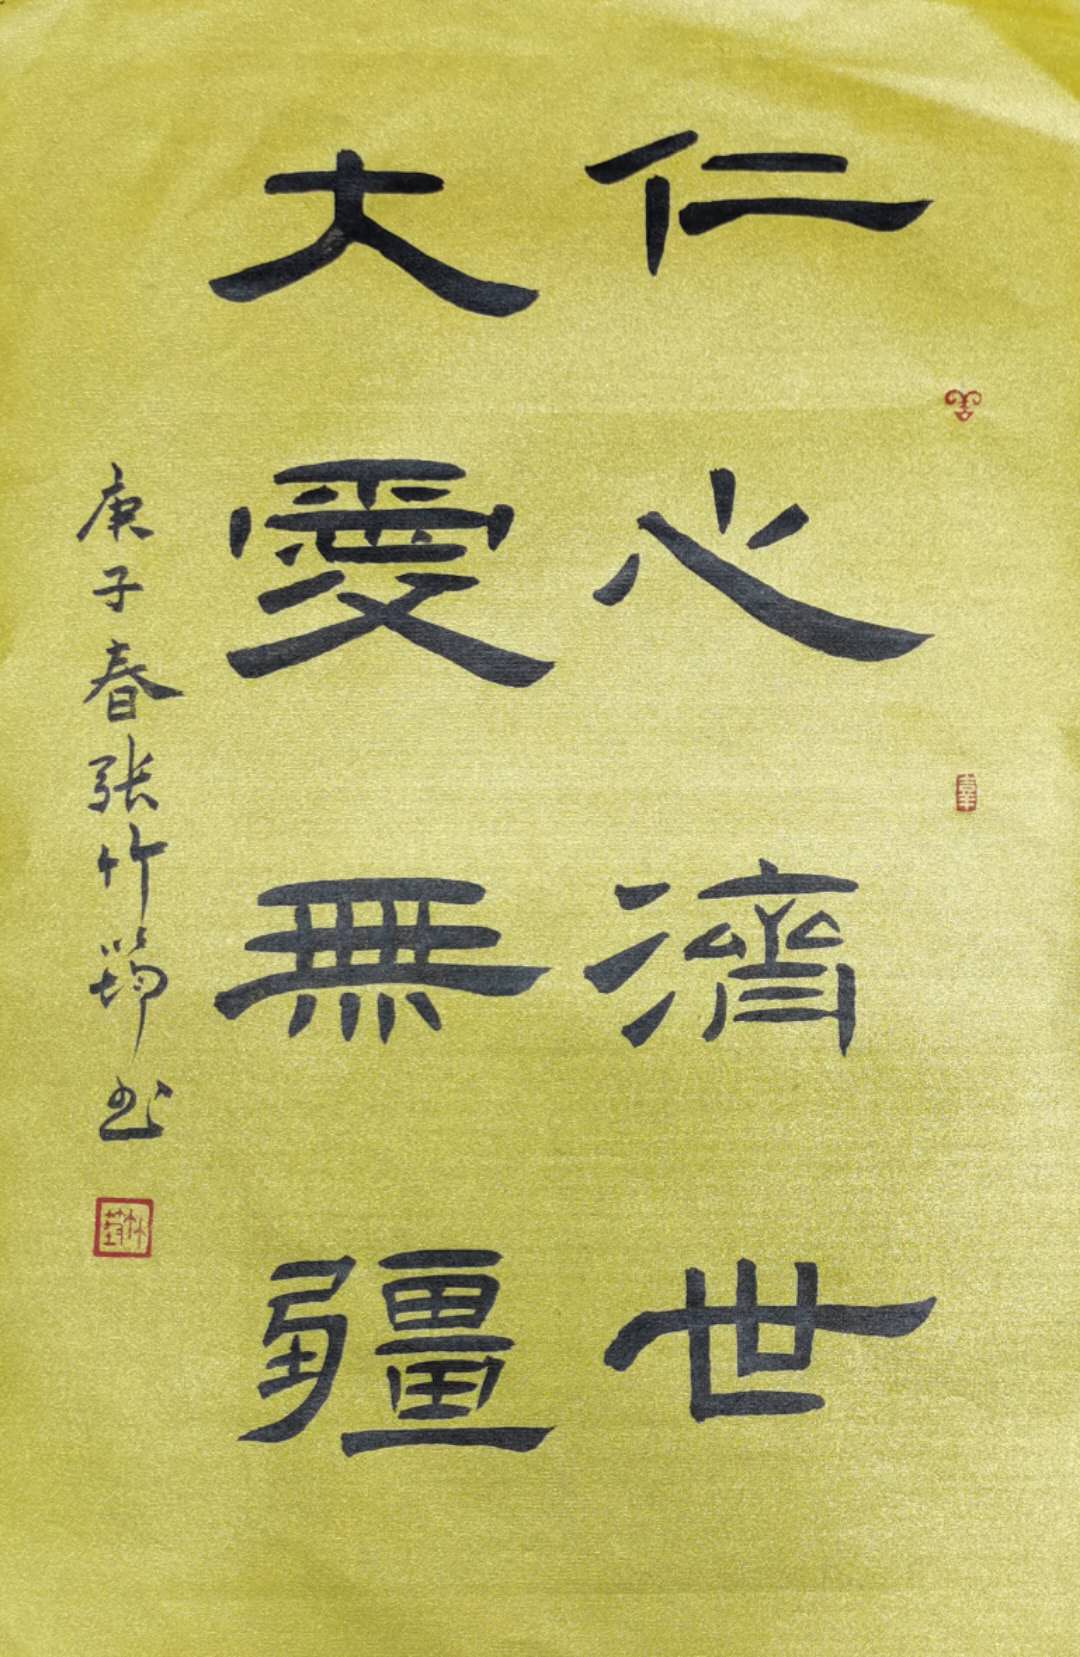 仁心濟世
大愛無疆
庚子春张竹筠书